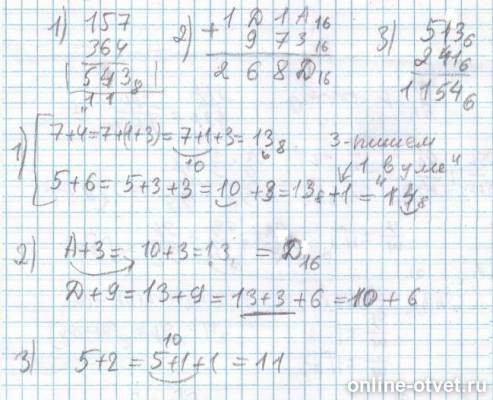 1) 157
364
543₈
11
2) + 1 D 1 A₁₆
9 7 3₁₆
2 6 8 D₁₆
3) 513₆
241₆
1154₆
1) 7+4=7+(1+3)= 7+1+3= 13₈ 3-пишем
10 1 в уме"
5+6= 5+3+3=10 +3=13₈+1="14₈
2) A+3= 10+3=13 = D₁₆
D+9=13+9=13+3+6=10+6
3) 5+2 = 5+1+1 = 11
10
online-otvet.ru